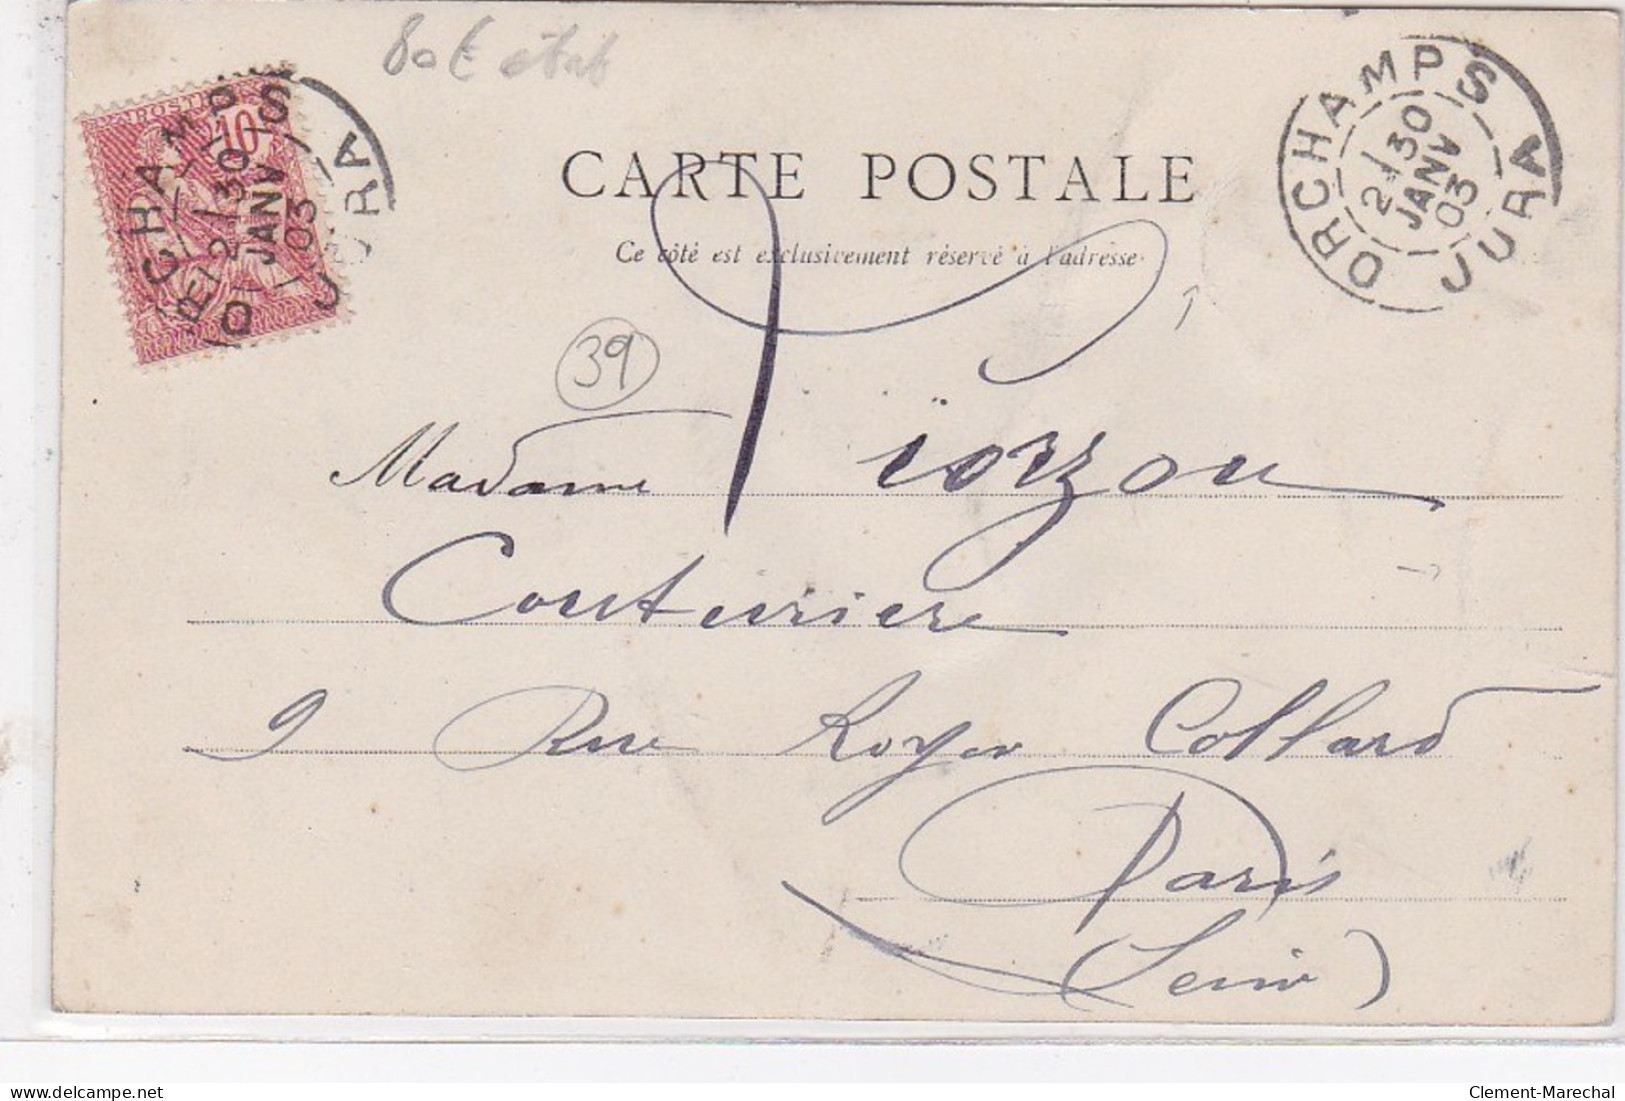 80€ état
POSTES
10
ORCHAMPS
2E / 30
JANV
03
JURA
ORCHAMPS
2E / 30
JANV
03
JURA
CARTE POSTALE
Ce côté est exclusivement réservé à l'adresse
39
Madame Piorzou
Couturiere
9 Rue Royer Collard
Paris
(Seine)
Clement-Marechal